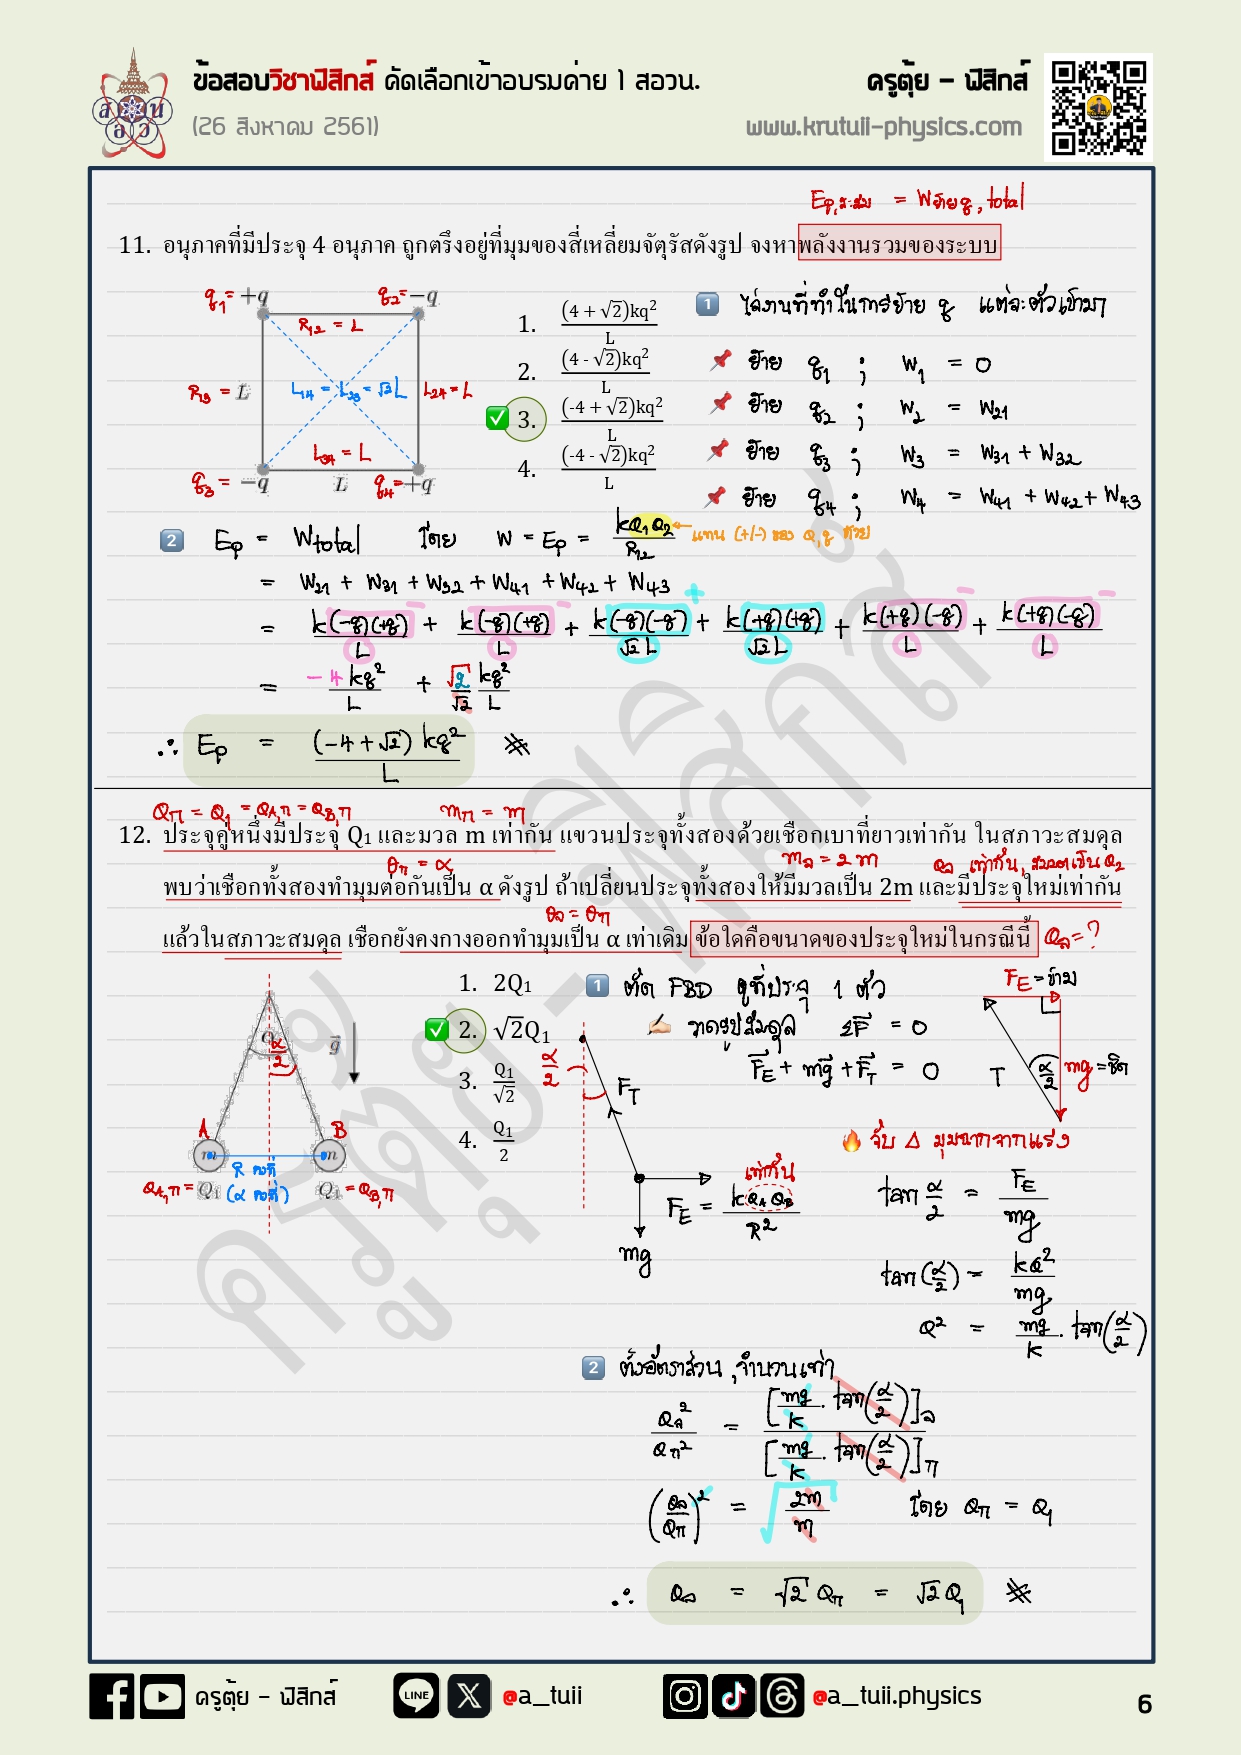 ข้อสอบวิชาฟิสิกส์ คัดเลือกเข้าอบรมค่าย 1 สอวน.
ครูตุ้ย – ฟิสิกส์
(26 สิงหาคม 2561)
www.krutuii-physics.com
11. อนุภาคที่มีประจุ 4 อนุภาค ถูกตรึงอยู่ที่มุมของสี่เหลี่ยมจัตุรัสดังรูป จงหาพลังงานรวมของระบบ
q₁= +q
q₂= -q
R₁₂ = L
R₁₃ = L
L₁₄ = L₂₃ = √2 L
L₂₄ = L
L₃₄ = L
q₃ = -q
L
q₄= +q
1. (4 + √2)kq² / L
2. (4 - √2)kq² / L
✅ 3. (-4 + √2)kq² / L
4. (-4 - √2)kq² / L
1 ไล่งานที่ทำในการย้าย q แต่ละตัวเข้ามา
📌 ย้าย q₁ ; W₁ = 0
📌 ย้าย q₂ ; W₂ = W₂₁
📌 ย้าย q₃ ; W₃ = W₃₁ + W₃₂
📌 ย้าย q₄ ; W₄ = W₄₁ + W₄₂ + W₄₃
2 Ep = Wtotal โดย W = Ep = kQ₁Q₂ / R₁₂ ← แทน (+/-) ของ Q,q ด้วย
= W₂₁ + W₃₁ + W₃₂ + W₄₁ + W₄₂ + W₄₃
= k(-q)(+q) / L + k(-q)(+q) / L + k(-q)(-q) / √2 L + k(+q)(+q) / √2 L + k(+q)(-q) / L + k(+q)(-q) / L
= -4kq² / L + 2 / √2 kq² / L
∴ Ep = (-4+√2) kq² / L
12. ประจุคู่หนึ่งมีประจุ Q₁ และมวล m เท่ากัน แขวนประจุทั้งสองด้วยเชือกเบาที่ยาวเท่ากัน ในสภาวะสมดุล
พบว่าเชือกทั้งสองทำมุมต่อกันเป็น α ดังรูป ถ้าเปลี่ยนประจุทั้งสองให้มีมวลเป็น 2m และมีประจุใหม่เท่ากัน
แล้วในสภาวะสมดุล เชือกยังคงกางออกทำมุมเป็น α เท่าเดิม ข้อใดคือขนาดของประจุใหม่ในกรณีนี้ Qล=?
α/2
g
A
B
m
m
R คงที่
(α คงที่)
Q₁
Q₁
1. 2Q₁
✅ 2. √2Q₁
3. Q₁ / √2
4. Q₁ / 2
1 ตัด FBD ดูที่ประจุ 1 ตัว
✍ วาดรูปสมดุล ΣF = 0
F_E + mg + F_T = 0
α/2
F_T
เท่ากัน
F_E = kQ_A Q_B / R²
mg
F_E = ข้าม
T
α/2
mg = ชิด
🔥 จับ Δ มุมฉากจากแรง
tan α/2 = F_E / mg
tan(α/2) = kQ² / mg
Q² = mg / k · tan(α/2)
2 ตั้งอัตราส่วน, จำนวนเท่า
Qล² / Qก² = [mg / k · tan(α/2)]ล / [mg / k · tan(α/2)]ก
(Qล / Qก)² = 2m / m โดย Qก = Q₁
∴ Qล = √2 Qก = √2 Q₁
ครูตุ้ย - ฟิสิกส์
ครูตุ้ย – ฟิสิกส์
LINE
@a_tuii
@a_tuii.physics
6